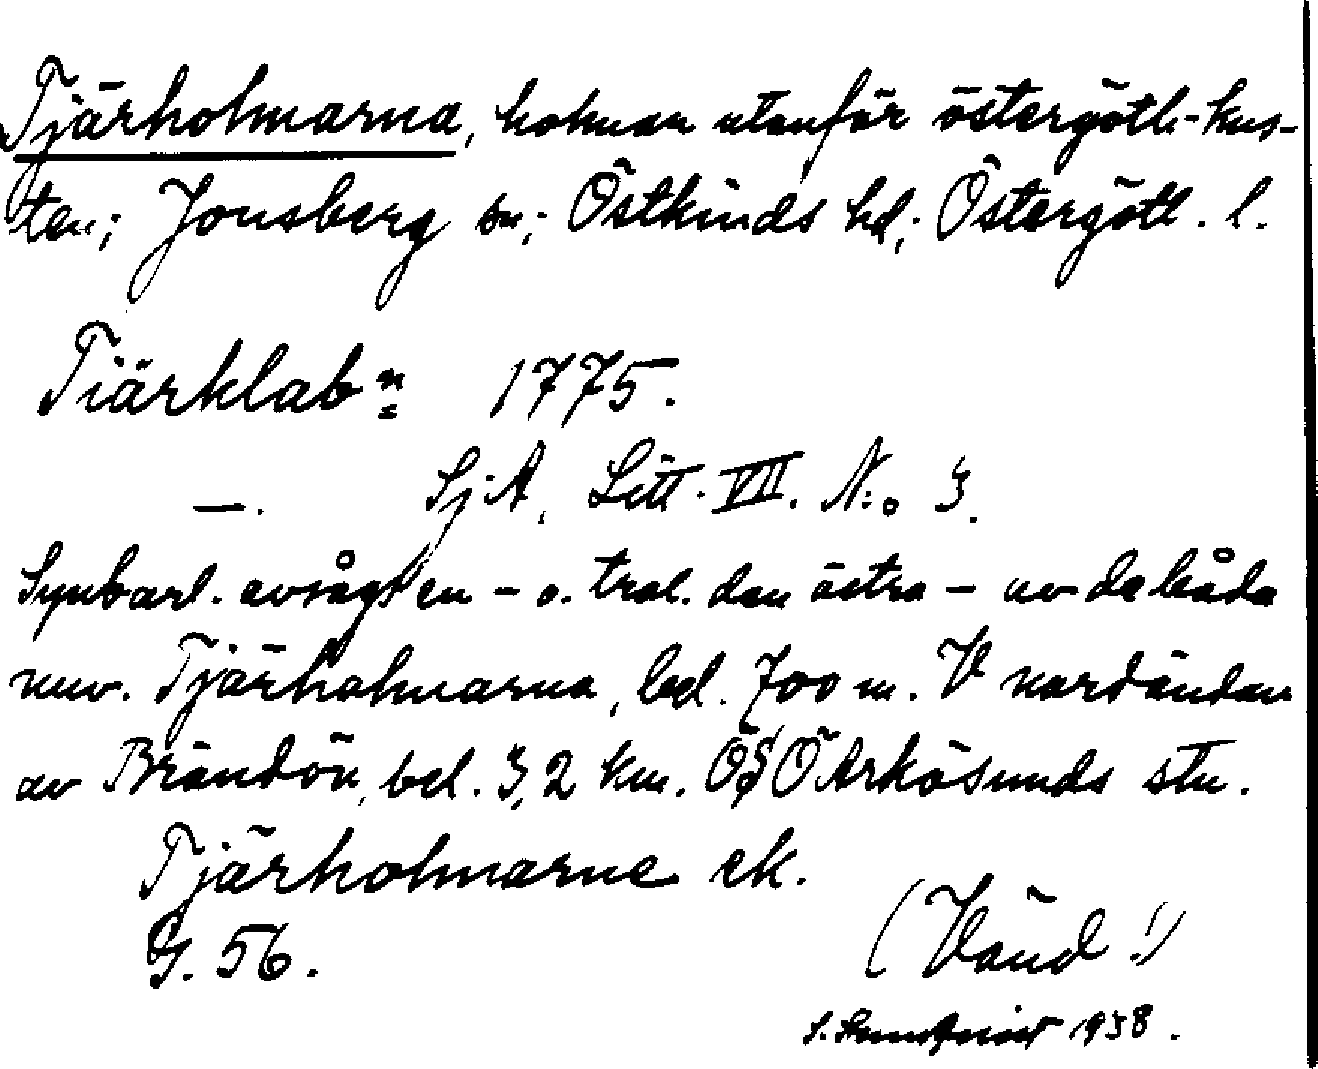 Tjärholmarna, holmar utanför östergötl.-kus-
ten; Jonsberg sn; Östkinds hd; Östergötl. l.
Tiärklabn 1775.
—. Sj.A, Litt. VII. N:o 3.
Synbarl. avsågs en - o. trol. den östra - av de båda
nuv. Tjärholmarna, bel. 700 m. V nordändan
av Brändön, bel. 3,2 km. ÖSÖ Arkösunds stn.
Tjärholmarne ek.
G. 56.
(Vänd!)
1938.